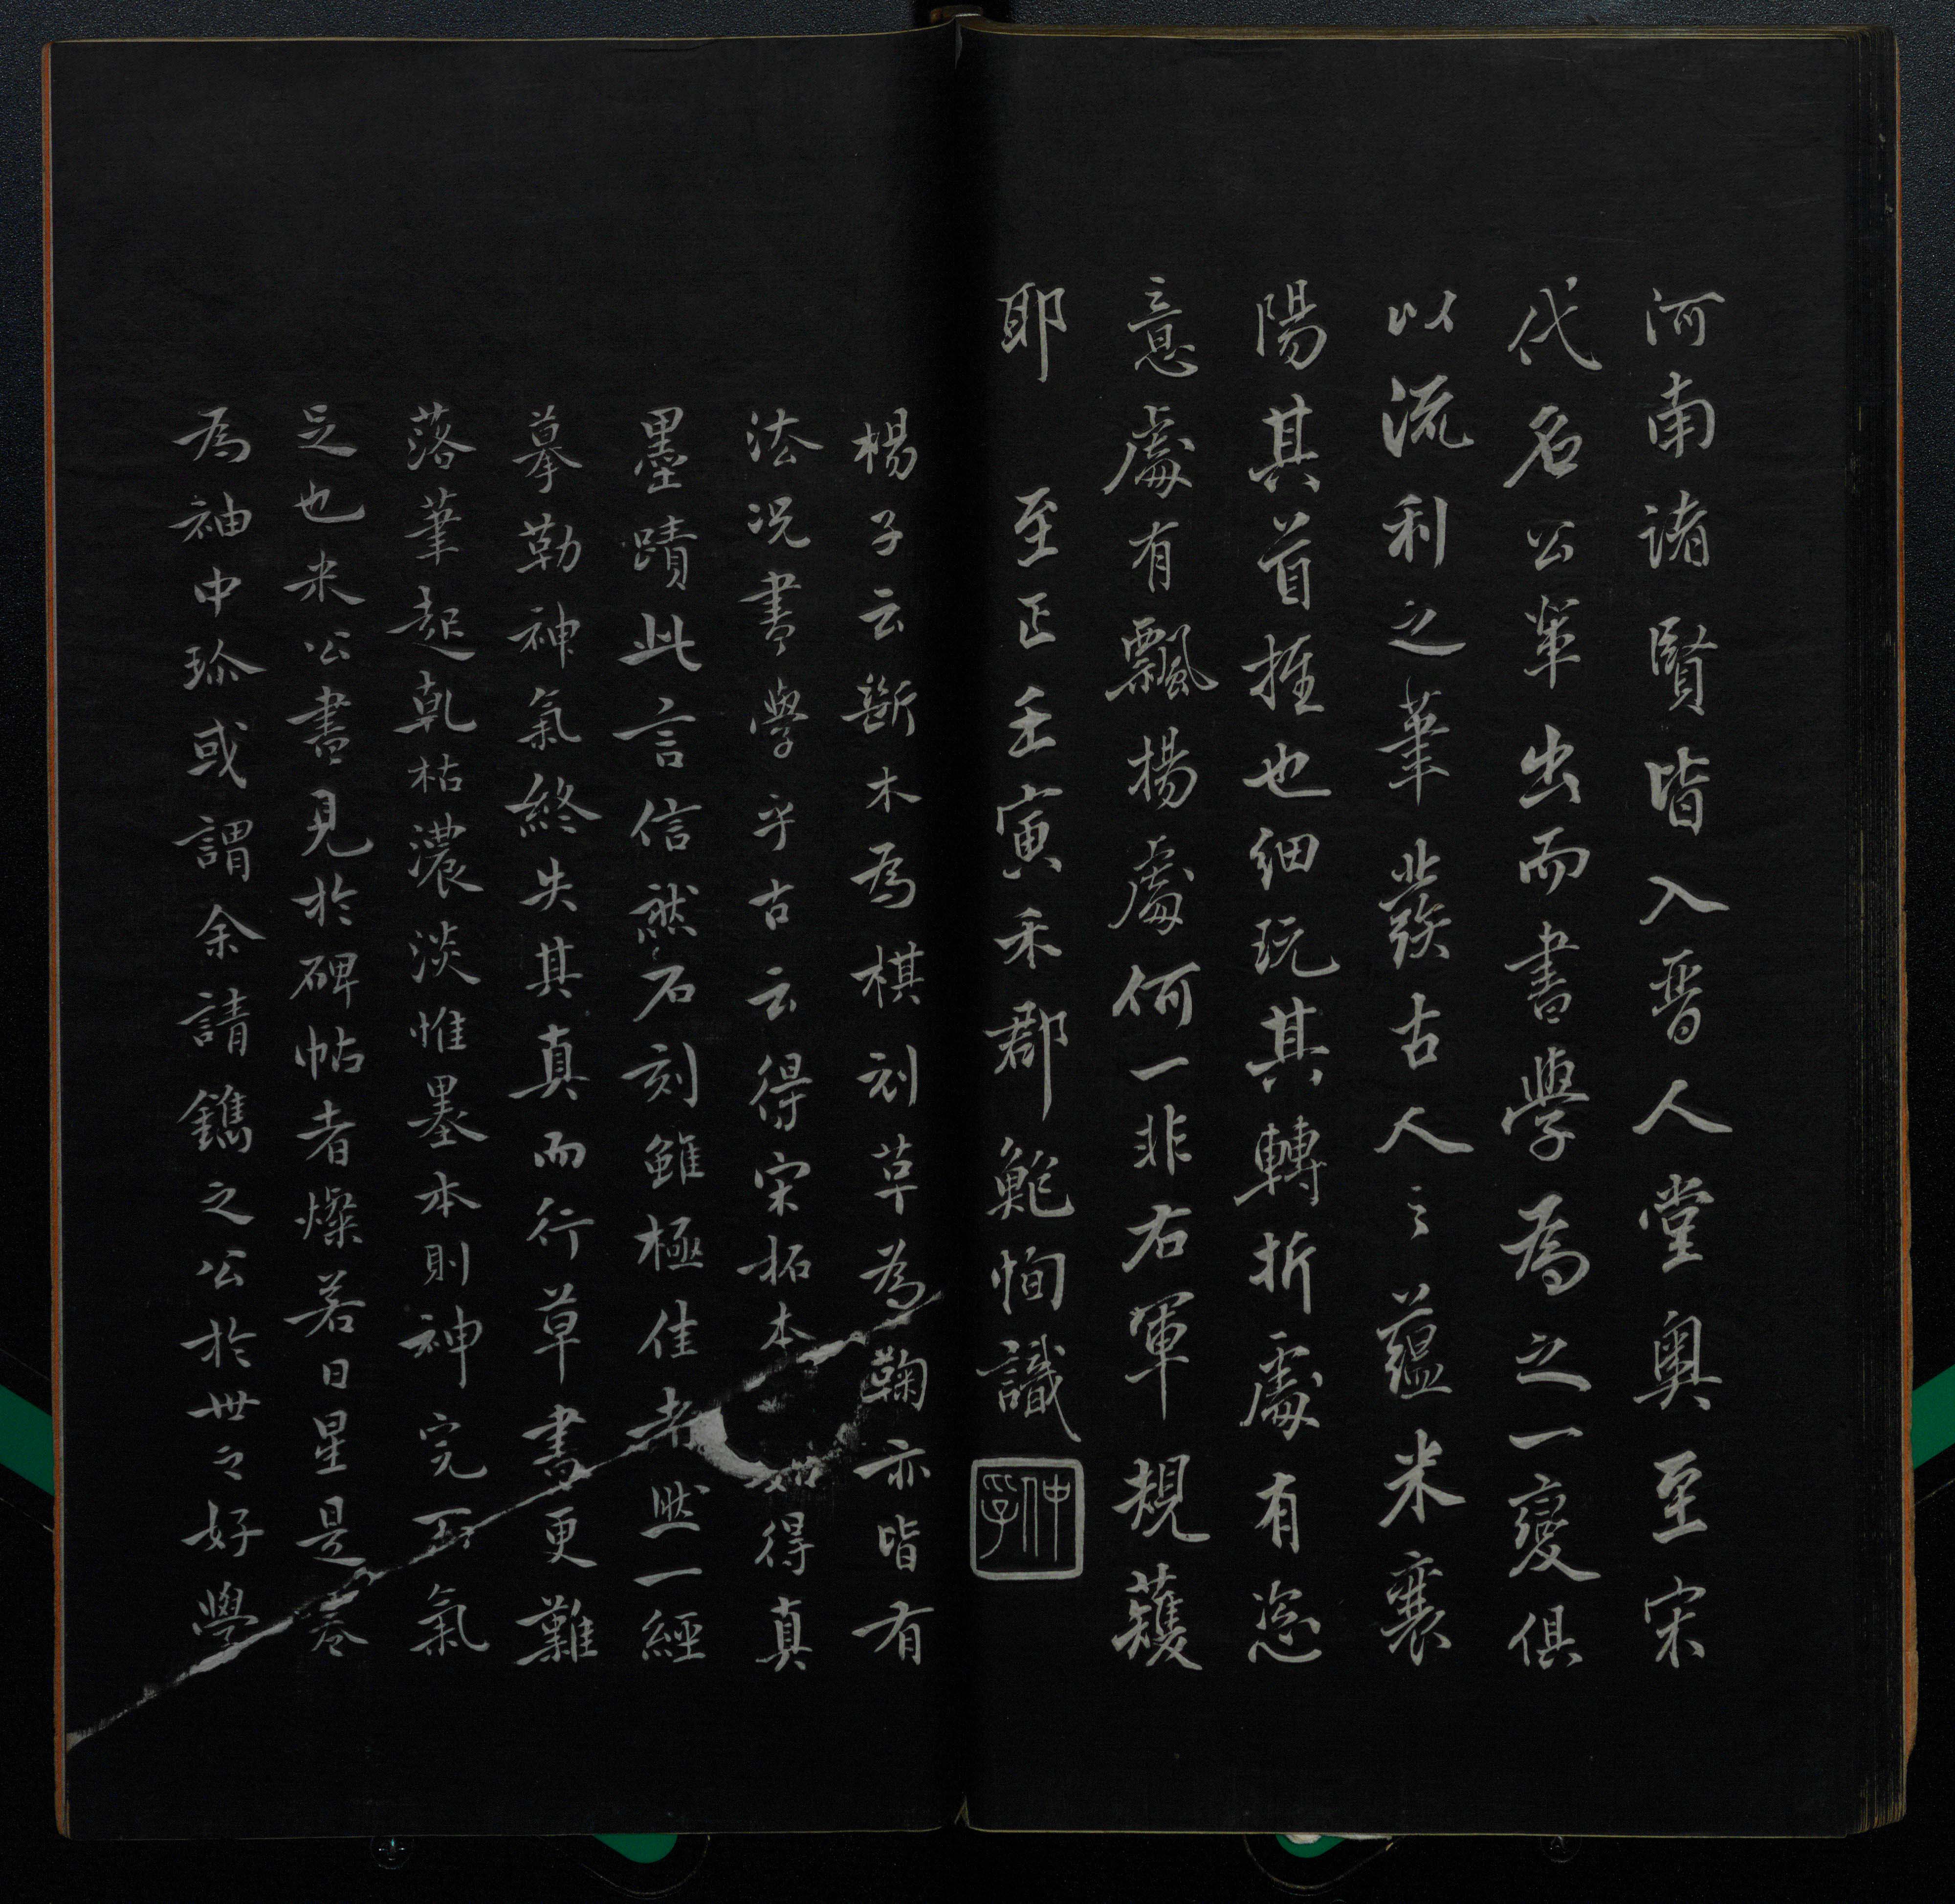 河南諸賢皆入晉人堂奧至宋
代名公輩出而書學為之一變俱
以流利之筆發古人之蘊米襄
陽其首推也細玩其轉折處有恣
意處有飄揚處何一非右軍規矱
耶 至正壬寅禾郡鮑恂識
仲孚
楊子云斷木為棋刓革為鞠亦皆有
法況書學乎古云得宋拓本如得真
墨蹟此言信然石刻雖極佳者然一經
摹勒神氣終失其真而行草書更難
落筆起乾枯濃淡惟墨本則神完而氣
足也米公書見於碑帖者燦若日星是卷
為袖中珍或謂余請鐫之公於世之好學